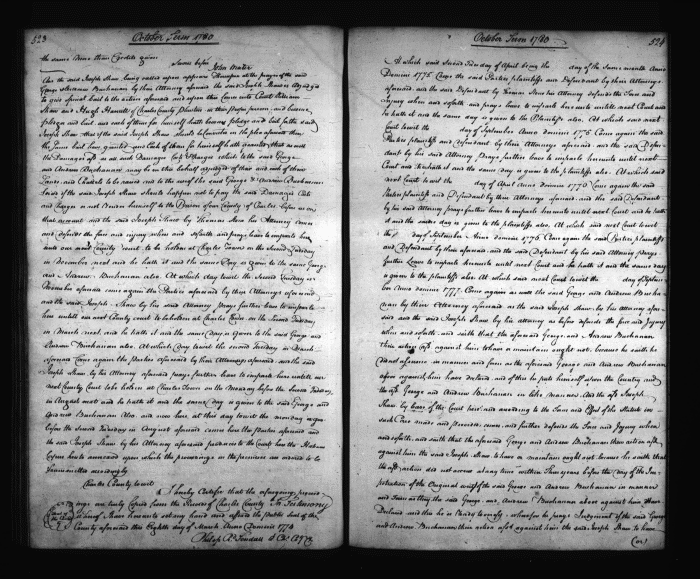 523
October Term 1780
the same Term then Certifie again
James Tifer
John Muter
And the said Joseph Shaw being called upon appears
George Andrew Buchanan by their Attorney aforesaid the said Joseph Shaw is
to give special bail to the action aforesaid and upon this came into Court William
and of Charles County Planters in their proper persons, and became
pledges and bail, and each of them for himself hath become pledge and bail for the said
Joseph Shaw that if the said Joseph Shaw should be Convicted in the plea aforesaid then
the same bail have granted, and each of them for himself hath granted that as well
the Damages as all such Damages Costs & Charges which to the said George
and Andrew Buchanan may be in this behalf adjudged of their and each of their
Lands and Chattels to be made and to the use of the said George & Andrew Buchanan
levied if the said Joseph Shaw should happen not to pay the said Damages Costs
and Charges or not render himself to the Prison of our County of Charles before us on
that account and the said Joseph Shaw by Thomas Stone his Attorney comes
and defends the force and injury when and so forth and prays leave to imparle here
until our next County Court to be holden at Charles Town on the Second Tuesday
in November next and he hath it and the same Day is given to the said George
and Andrew Buchanan also. At which day to wit the Second Tuesday in
November aforesaid came again the Parties aforesaid by their Attorneys aforesaid
and the said Joseph Shaw by his said Attorney prays further leave to imparle
here until our next County Court to be holden at Charles Town on the Second Tuesday
in March next, and he hath it and the same Day is given to the said George and
Andrew Buchanan also. At which Day to wit the Second Tuesday in March
aforesaid Came again the Parties aforesaid by their Attorneys aforesaid, and the said
Joseph Shaw by his Attorney aforesaid prays further leave to imparle here until our
next County Court to be holden at Charles Town on the Monday before the Second Tuesday
in August next and he hath it and the same Day is given to the said George and
Andrew Buchanan also, and now here at this day to wit the Monday
before the Second Tuesday in August aforesaid came here the Parties aforesaid and
the said Joseph Shaw by his Attorney aforesaid produces to the Court here the Habeas
Corpus hereto annexed upon which the proceedings in the premises are ordered to be
transmitted accordingly
Charles County to wit
I hereby Certifie that the aforegoing proceed
ings are truly Copied from the Record of Charles County In Testimony
whereof I have hereunto set my hand and affixed the Public Seal of the
County aforesaid this Eighth day of March Anno Domini 1774
October Term 1780
524
At which said Second Tuesday of April being the day of the same month Anno
Domini 1775 Came the said Parties plaintiffs and Defendant by their Attorneys
aforesaid and the said Defendant by Thomas Stone his Attorney defends the Force and
Injury when and so forth and prays leave to imparle hereunto until next Court and
he hath it and the same day is given to the Plaintiffs also. At which said next
Court to wit the day of September Anno domini 1775 Came again the said
Parties plaintiffs and Defendant by their Attorneys aforesaid, and the said Defen-
dant by his said Attorney Prays further leave to imparle hereunto until next
Court and he hath it and the same day is given to the plaintiffs also. At which said
next Court to wit the day of April Anno domini 1776 Came again the said
Parties plaintiffs and Defendant by their Attorneys aforesaid, and the said Defendant
by his said Attorney prays further leave to imparle hereunto until next Court and he hath
it and the same day is given to the plaintiffs also. At which said next Court to wit
the day of September Anno domini 1776 Came again the said Parties plaintiffs
and Defendant by their Attorneys aforesaid, and the said Defendant by his said Attorney Prays
further Leave to imparle hereunto until next Court and he hath it and the same day
is given to the plaintiffs also. At which said next Court to wit the day of
Anno domini 1777 Came again as well the said George and Andrew Bucha-
nan by their Attorney aforesaid as the said Joseph Shaw by his Attorney afore-
said and the said Joseph Shaw by his attorney as before defends the force and Injury
when and so forth, and saith that the aforesaid George and Andrew Buchanan
their action aft. against him to have or maintain ought not, because he saith he
did not assume in manner and form as the aforesaid George and Andrew Buchanan
above against him have declared, and of this he puts himself upon the Country and
the aft. George and Andrew Buchanan in like manner. And the aft. Joseph
Shaw by leave of the Court here and according to the Form and Effect of the Statute in
such Case made and provided comes and further defends the Force and Injury when
and so forth, and saith that the aforesaid George and Andrew Buchanan their action aft.
against him the said Joseph Shaw to have or maintain ought not because he saith that
the aft. action did not accrue at any time within Three years before the Day of the Ins-
titution of the Original Writ of the said George and Andrew Buchanan in manner
and Form as they the said George and Andrew Buchanan above against him have
Declared, and this he is Ready to verify: wherefore he prays Judgement if the said George
and Andrew Buchanan their action aft. against him the said Joseph Shaw to have
(or)